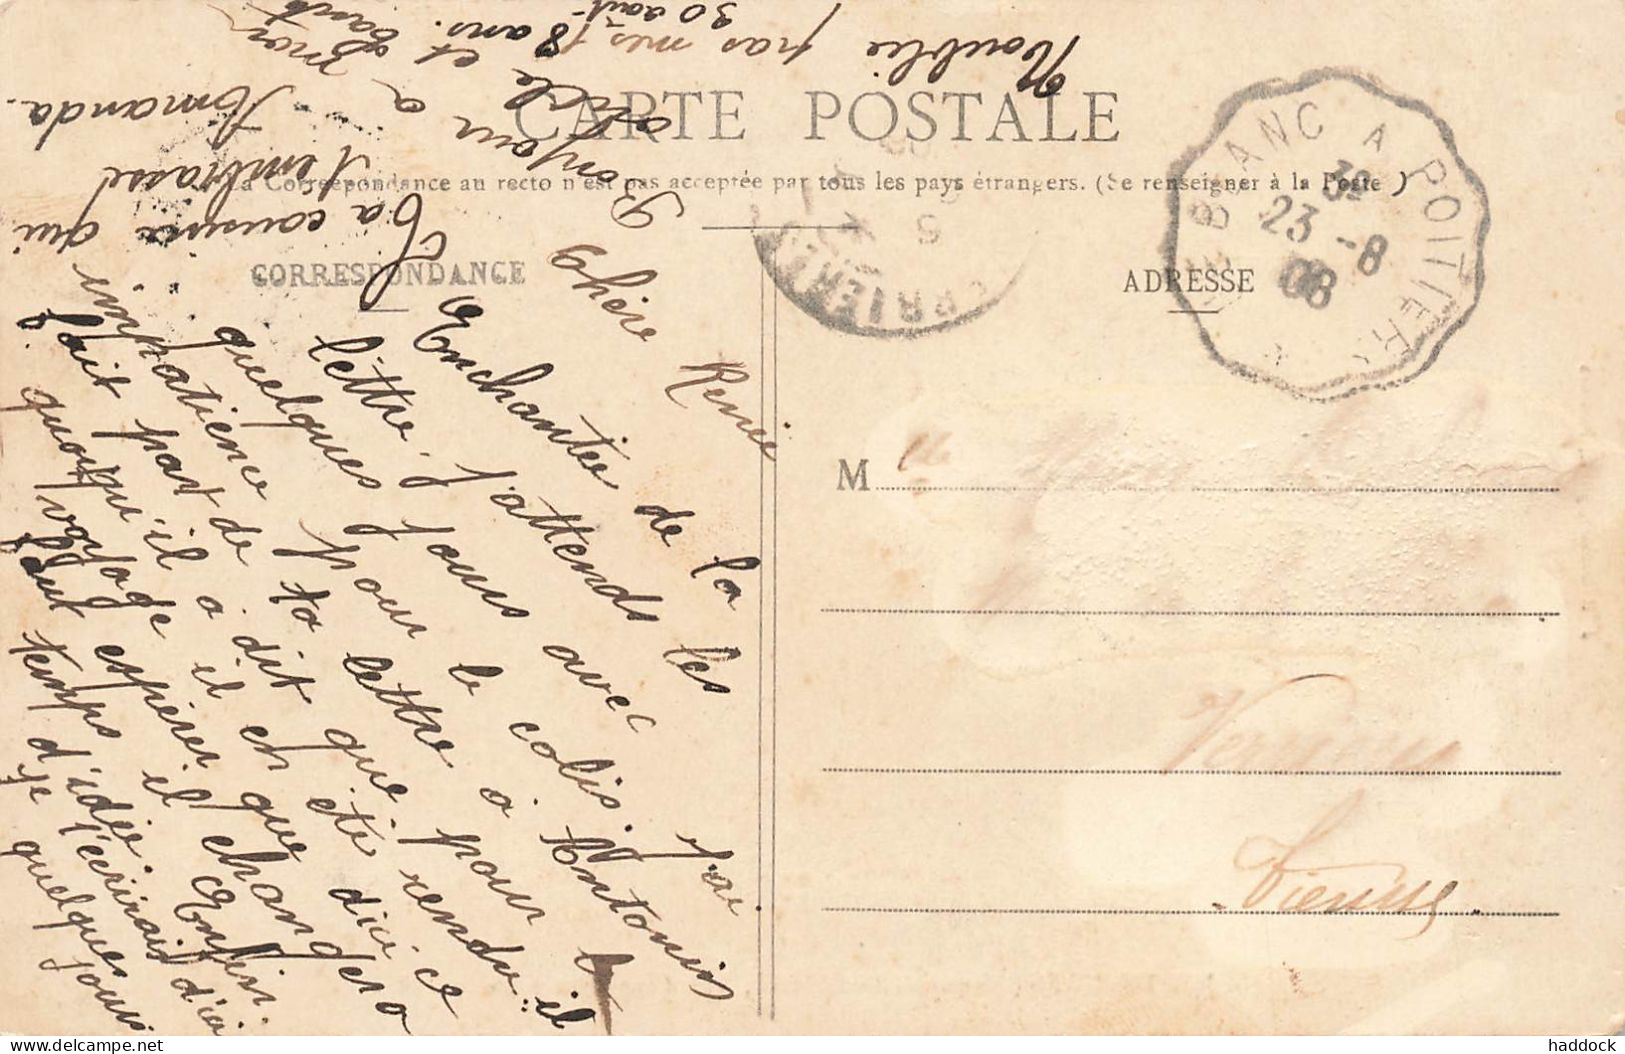 CARTE POSTALE
La Correspondance au recto n'est pas acceptée par tous les pays étrangers. (Se renseigner à la Poste)
CORRESPONDANCE
ADRESSE
BLANC A POITIERS
3º
23 - 8
08
M
Vienne
Chère Renée
J'ai
Enchantée de la
lettre. J'attends les
quelques jours avec
impatience pour le colis.
fait part de ta lettre à Antonin
quoiqu'il a dit que pour le
voyage il est été rendu. il
faut espérer que d'ici ce
temps il changera
d'idée. Enfin
je t'écrirais d'ici
quelques jours
Ta cousine qui
t'embrasse
Amanda.
Bonjour à mon
oncle et tante
N'oublie pas mes 18 ans.
30 août
haddock